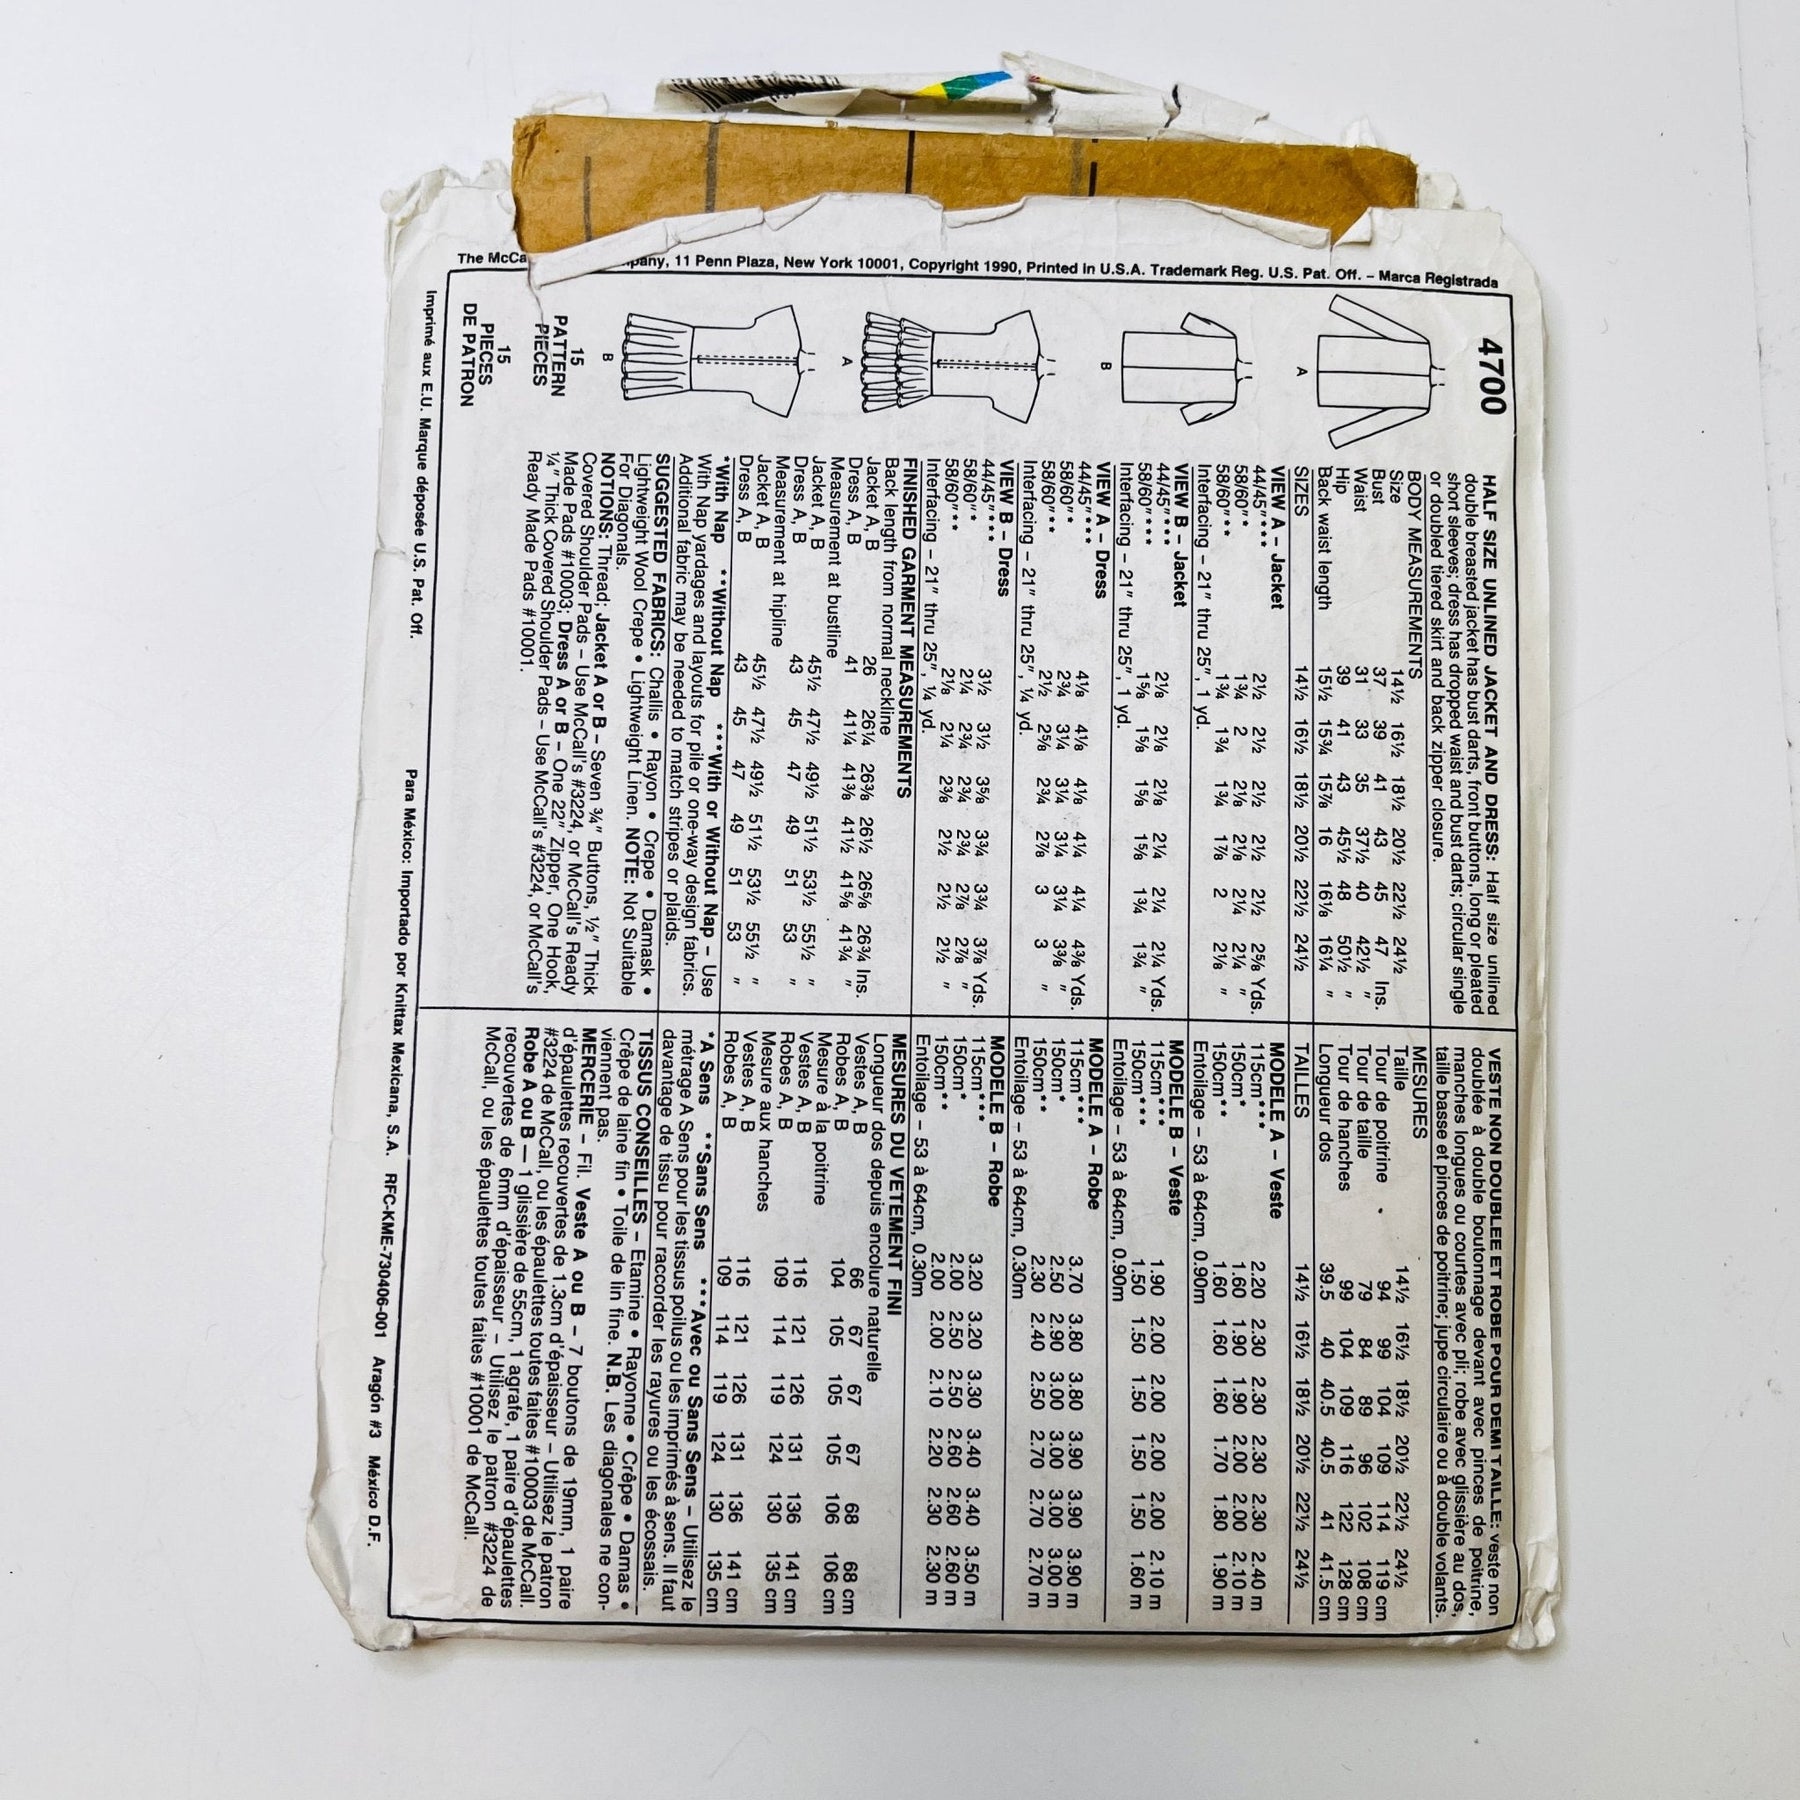 The McCa      pany, 11 Penn Plaza, New York 10001, Copyright 1990, Printed in U.S.A. Trademark Reg. U.S. Pat. Off. – Marca Registrada
4700
A
B
A
B
15
PATTERN
PIECES
15
PIECES
DE PATRON
HALF SIZE UNLINED JACKET AND DRESS: Half size unlined
double breasted jacket has bust darts, front buttons, long or pleated
short sleeves; dress has dropped waist and bust darts; circular single
or doubled tiered skirt and back zipper closure.
BODY MEASUREMENTS
Size 14½ 16½ 18½ 20½ 22½ 24½
Bust 37 39 41 43 45 47 Ins.
Waist 31 33 35 37½ 40 42½ "
Hip 39 41 43 45½ 48 50½ "
Back waist length 15½ 15¾ 15⅞ 16 16⅛ 16¼ "
SIZES 14½ 16½ 18½ 20½ 22½ 24½
VIEW A – Jacket
44/45"*** 2½ 2½ 2½ 2½ 2½ 2⅝ Yds.
58/60"* 1¾ 2 2⅛ 2⅛ 2¼ 2¼ "
58/60"** 1¾ 1¾ 1¾ 1⅞ 2 2⅛ "
Interfacing – 21" thru 25", 1 yd.
VIEW B – Jacket
44/45"*** 2⅛ 2⅛ 2⅛ 2¼ 2¼ 2¼ Yds.
58/60"*** 1⅝ 1⅝ 1⅝ 1⅝ 1¾ 1¾ "
Interfacing – 21" thru 25", 1 yd.
VIEW A – Dress
44/45"*** 4⅛ 4⅛ 4⅛ 4¼ 4¼ 4⅜ Yds.
58/60"* 2¾ 3¼ 3¼ 3¼ 3¼ 3⅜ "
58/60"** 2½ 2⅝ 2¾ 2⅞ 3 3 "
Interfacing – 21" thru 25", ¼ yd.
VIEW B – Dress
44/45"*** 3½ 3½ 3⅝ 3¾ 3¾ 3⅞ Yds.
58/60"* 2¼ 2¾ 2¾ 2¾ 2⅞ 2⅞ "
58/60"** 2⅛ 2¼ 2⅜ 2½ 2½ 2½ "
Interfacing – 21" thru 25", ¼ yd.
FINISHED GARMENT MEASUREMENTS
Back length from normal neckline
Jacket A, B 26 26¼ 26⅜ 26½ 26⅝ 26¾ Ins.
Dress A, B 41 41¼ 41⅜ 41½ 41⅝ 41¾ "
Measurement at bustline
Jacket A, B 45½ 47½ 49½ 51½ 53½ 55½ "
Dress A, B 43 45 47 49 51 53 "
Measurement at hipline
Jacket A, B 45½ 47½ 49½ 51½ 53½ 55½ "
Dress A, B 43 45 47 49 51 53 "
*With Nap **Without Nap ***With or Without Nap – Use
With Nap yardages and layouts for pile or one-way design fabrics.
Additional fabric may be needed to match stripes or plaids.
SUGGESTED FABRICS: Challis • Rayon • Crepe • Damask •
Lightweight Wool Crepe • Lightweight Linen. NOTE: Not Suitable
For Diagonals.
NOTIONS: Thread; Jacket A or B – Seven ¾" Buttons, ½" Thick
Covered Shoulder Pads – Use McCall's #3224, or McCall's Ready
Made Pads #10003; Dress A or B – One 22" Zipper, One Hook,
¼" Thick Covered Shoulder Pads – Use McCall's #3224, or McCall's
Ready Made Pads #10001.
VESTE NON DOUBLEE ET ROBE POUR DEMI TAILLE: veste non
doublée à double boutonnage devant avec pinces de poitrine,
manches longues ou courtes avec pli; robe avec glissière au dos,
taille basse et pinces de poitrine; jupe circulaire ou à double volants.
MESURES
Taille 14½ 16½ 18½ 20½ 22½ 24½
Tour de poitrine 94 99 104 109 114 119 cm
Tour de taille 79 84 89 96 102 108 cm
Tour de hanches 99 104 109 116 122 128 cm
Longueur dos 39.5 40 40.5 40.5 41 41.5 cm
TAILLES 14½ 16½ 18½ 20½ 22½ 24½
MODELE A – Veste
115cm*** 2.20 2.30 2.30 2.30 2.30 2.40 m
150cm* 1.60 1.90 1.90 2.00 2.00 2.10 m
150cm** 1.60 1.60 1.60 1.70 1.80 1.90 m
Entoilage – 53 à 64cm, 0.90m
MODELE B – Veste
115cm*** 1.90 2.00 2.00 2.00 2.00 2.10 m
150cm*** 1.50 1.50 1.50 1.50 1.50 1.60 m
Entoilage – 53 à 64cm, 0.90m
MODELE A – Robe
115cm*** 3.70 3.80 3.80 3.90 3.90 3.90 m
150cm* 2.50 2.90 3.00 3.00 3.00 3.00 m
150cm** 2.30 2.40 2.50 2.70 2.70 2.70 m
Entoilage – 53 à 64cm, 0.30m
MODELE B – Robe
115cm*** 3.20 3.20 3.30 3.40 3.40 3.50 m
150cm* 2.00 2.50 2.50 2.60 2.60 2.60 m
150cm** 2.00 2.00 2.10 2.20 2.30 2.30 m
Entoilage – 53 à 64cm, 0.30m
MESURES DU VETEMENT FINI
Longueur dos depuis encolure naturelle
Vestes A, B 66 67 67 67 68 68 cm
Robes A, B 104 105 105 105 106 106 cm
Mesure à la poitrine
Vestes A, B 116 121 126 131 136 141 cm
Robes A, B 109 114 119 124 130 135 cm
Mesure aux hanches
Vestes A, B 116 121 126 131 136 141 cm
Robes A, B 109 114 119 124 130 135 cm
*A Sens **Sans Sens ***Avec ou Sans Sens – Utilisez le
métrage A Sens pour les tissus poilus ou les imprimés à sens. Il faut
davantage de tissu pour raccorder les rayures ou les écossais.
TISSUS CONSEILLES – Etamine • Rayonne • Crêpe • Damas •
Crêpe de laine fin • Toile de lin fine. N.B. Les diagonales ne con-
viennent pas.
MERCERIE – Fil. Veste A ou B – 7 boutons de 19mm, 1 paire
d'épaulettes recouvertes de 1.3cm d'épaisseur – Utilisez le patron
#3224 de McCall, ou les épaulettes toutes faites #10003 de McCall.
Robe A ou B — 1 glissière de 55cm, 1 agrafe, 1 paire d'épaulettes
recouvertes de 6mm d'épaisseur – Utilisez le patron #3224 de
McCall, ou les épaulettes toutes faites #10001 de McCall.
Imprimé aux E.U. Marque déposée U.S. Pat. Off.
Para México: Importado por Knittax Mexicana, S.A. RFC-KME-730406-001 Aragón #3 México D.F.